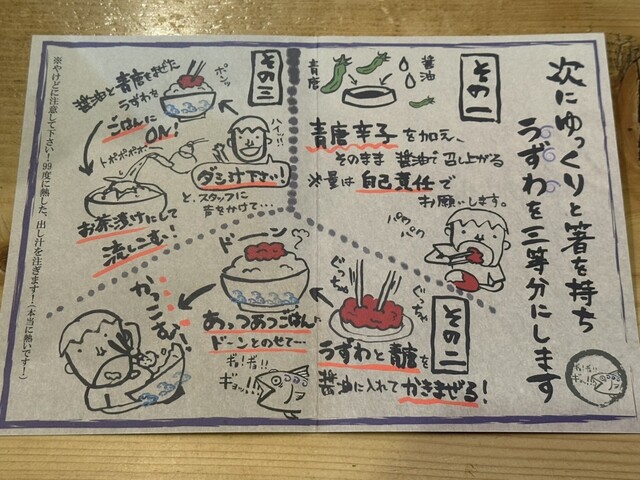 次にゆっくりと箸を持ち
うずわを三等分にします
その一
醤油
青唐
青唐辛子を加え、
そのまま醤油で召し上がる
※量は自己責任で
お願いします。
パク
パク
その二
ぐっちゃ
ぐっちゃ
うずわと青唐を
醤油に入れてかきまぜる!
ドーン
あっつあつごはんに
ドーンとのせて…
ギョ!ギョ!!
ギョッ!!
かっこむ!
その三
ハイッ!!
ダシ汁下さい!
と、スタッフに
声をかけて…
ポンッ
醤油と青唐をまぜた
うずわを
ごはんに
ON!
トポポポポー
お茶漬けにして
流しこむ!
※やけどに注意して下さい!99度に熱した、出し汁を注ぎます!(本当に熱いです!)